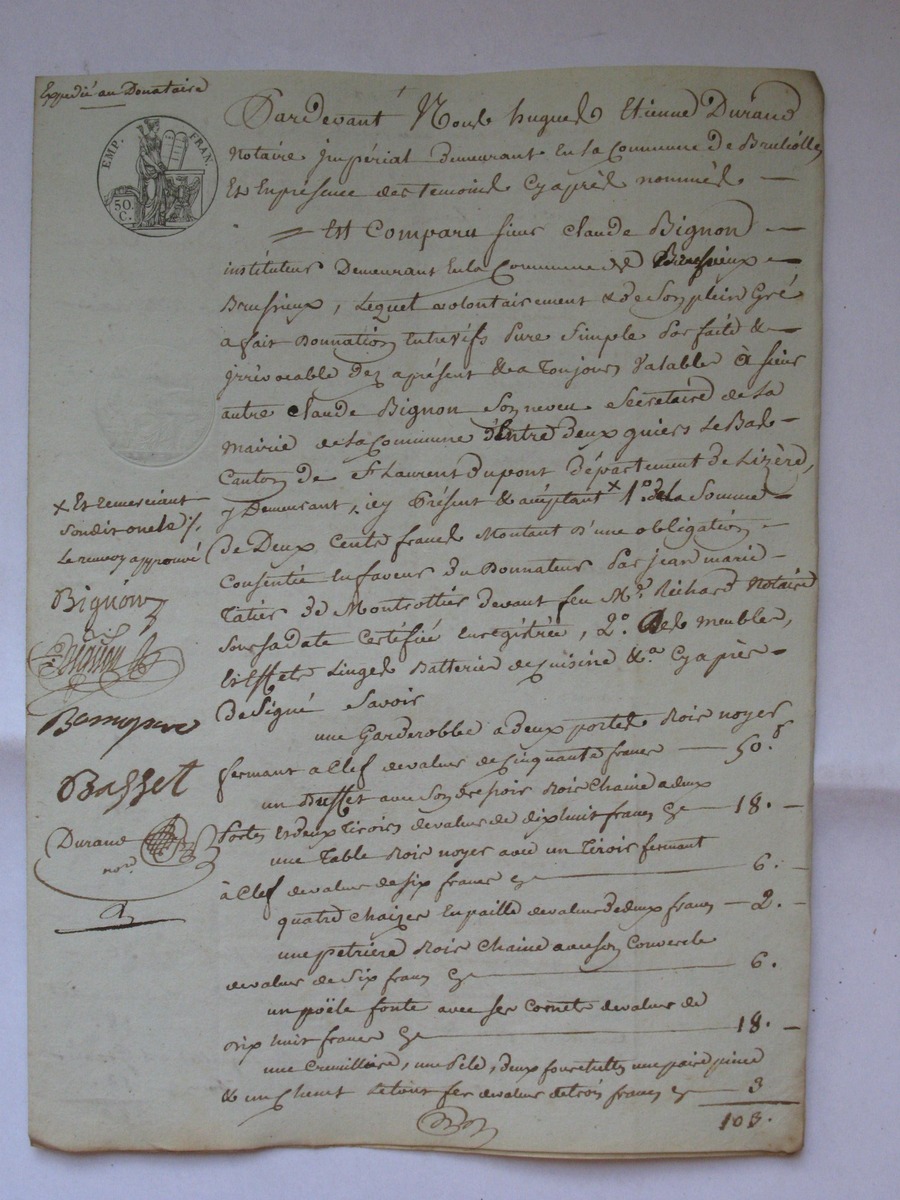 Expedié au Donataire
EMP. FRAN.
50
C.
Pardevant Nous hugues Etienne Durand
Notaire impérial demeurant En la Commune de Brulliolles
Et En présence des temoins Cy après nommés —
Est Comparu sieur Claude Bignon —
instituteur Demeurant En la Commune de
Brussieux, Lequel volontairement & de Son plein Gré
a fait Donnation Entrevifs pure Simple parfaite &
Irrévocable dez aprésent & a Toujours Valable à sieur
autre Claude Bignon Son neveu Secrétaire de La
Mairie de La Commune d'Entre deux guiers Le Bas
Canton de St Laurent du pont département de Lizère,
y Demeurant, icy Présent & acceptant × 1° de la Somme
de Deux Cents francs Montant d'une obligation
Consentie En faveur du Donnateur Par jean marie
Tatier de Montrottier devant feu Me Richard Notaire
Sous sa date Certifiée Enregistrée, 2° des meubles,
Effets Linges Batterie de Cuisine &a Cy après
Designé Savoir
une Garderobbe a deux portes Bois noyer
fermant a Clef de valeur de Cinquante francs — 50.f
un Buffet avec Son drepoir Bois Chaine a deux
Portes Et deux Tiroirs de valeur de dix huit francs Cy — 18. —
une Table Bois noyer avec un Tiroir fermant
à Clef de valeur de Six francs Cy — 6.
quatre Chaizes En paille de valeur de deux francs — 2. —
une petrière Bois Chaine avec son Couvercle
de valeur de Six francs Cy — 6.
un poële fonte avec ses Cornets de valeur de
dix huit francs Cy — 18. —
une Cremilliere, une Pele, deux une paire pince
& un Chenet Le tout fer de valeur de trois francs Cy — 3
103.
× Et Remerciant
Son dit oncle /.
Le renvoy approuvé
Bignon
Bignon
Basset
Durand
nore.